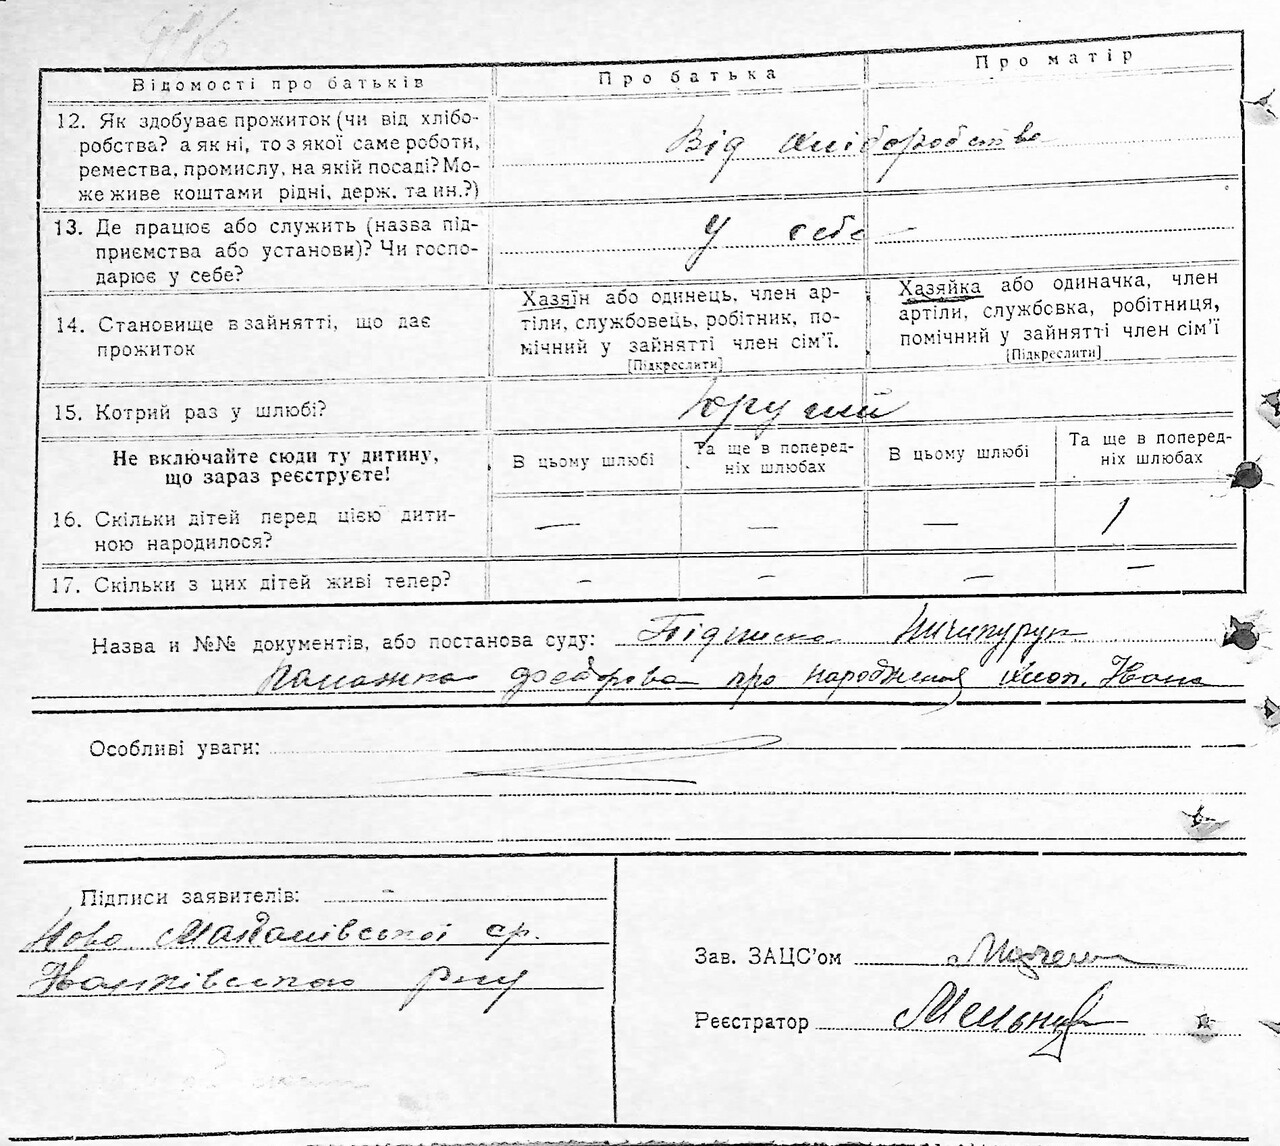 Відомості про батьків
Про батька
Про матір
12. Як здобуває прожиток (чи від хлібо-
робства? а як ні, то з якої саме роботи,
ремества, промислу, на якій посаді? Мо-
же живе коштами рідні, держ. та ин.?)
Від хліборобства
13. Де працює або служить (назва під-
приємства або установи)? Чи госпо-
дарює у себе?
У себе
14. Становище в зайнятті, що дає
прожиток
Хазяїн або одинець, член ар-
тіли, службовець, робітник, по-
мічний у зайнятті член сім'ї.
[Підкреслити]
Хазяйка або одиначка, член
артіли, службовка, робітниця,
помічний у зайнятті член сім'ї
[Підкреслити]
15. Котрий раз у шлюбі?
Другий
Не включайте сюди ту дитину,
що зараз реєструєте!
В цьому шлюбі
Та ще в поперед-
ніх шлюбах
В цьому шлюбі
Та ще в поперед-
ніх шлюбах
16. Скільки дітей перед цією дити-
ною народилося?
— — — 1
17. Скільки з цих дітей живі тепер?
— — — —
Назва и №№ документів, або постанова суду: Підписка Ничипурук
Федорова про народження хлоп. Івана
Особливі уваги:
Підписи заявителів: —
Ново Майданівської ср.
Зав. ЗАЦС'ом
Реєстратор